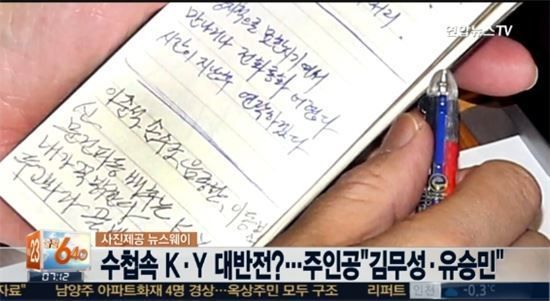 연합뉴스TV
만나거나 전화통화 어렵다
시간이 지난후 연락하겠다
이준석 손수조 음종환, 이동빈
신
문건파동 배후는
내가 꼭 밝힌다
두고봐라 곧
사진제공 뉴스웨이
23
640
07:12
수첩속 K·Y 대반전?…주인공"김무성·유승민"
자료” 남양주 아파트화재 4명 경상…옥상주민 모두 구조 리퍼트 인천 -0.3℃